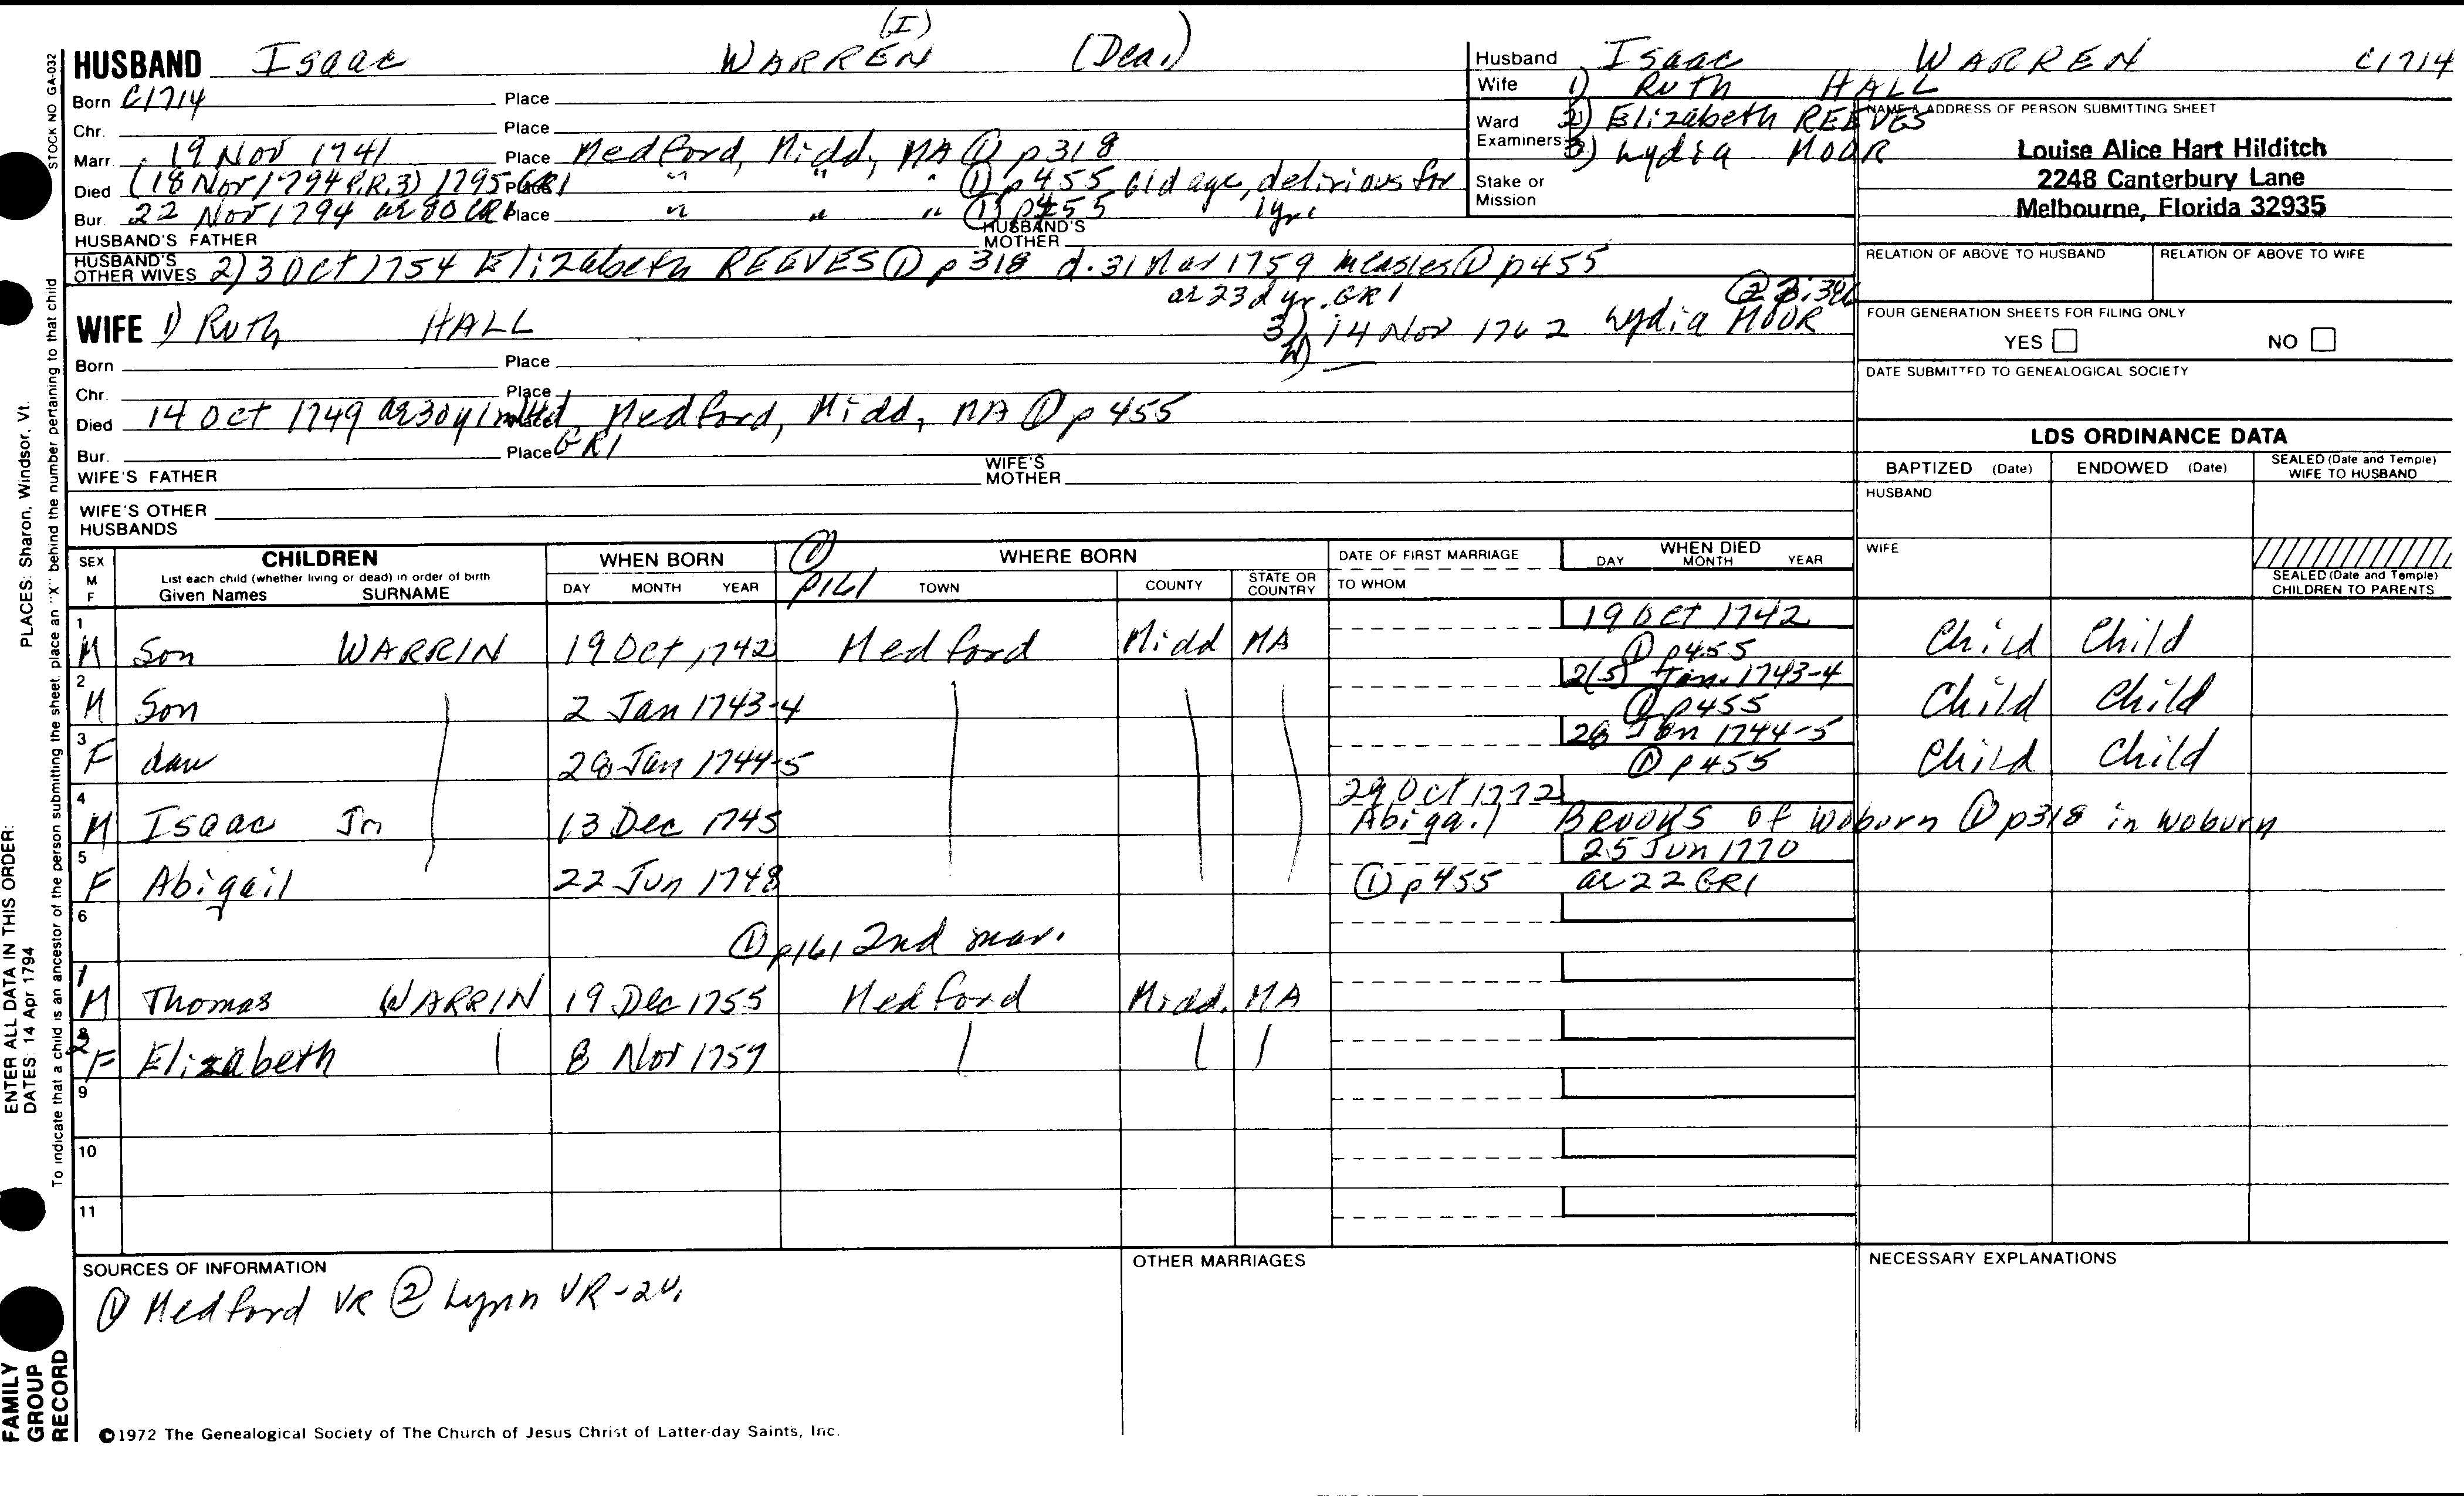 (I)
HUSBAND Isaac WARREN (Dea.)
Born C1714 Place
Chr. Place
Marr. 19 Nov 1741 Place Medford, Midd, MA ① p318
Died (18 Nov 1794 P.R.3) 1795 GR1 Place " " " ① p455 old age, delirious for
Bur. 22 Nov 1794 ae 80 CR1 Place " " " ① p455 1yr.
HUSBAND'S FATHER HUSBAND'S MOTHER
HUSBAND'S OTHER WIVES 2) 3 Oct 1754 Elizabeth REEVES ① p318 d. 31 Mar 1759 measles ① p455
ae 23d yr. GR1
3) 14 Nov 1762 Lydia MOOR
WIFE 1) Ruth HALL
Born Place
Chr. Place
Died 14 Oct 1749 ae 30y 1m Place Medford, Midd, MA ① p455
Bur. Place GR1
WIFE'S FATHER WIFE'S MOTHER
WIFE'S OTHER HUSBANDS
Husband Isaac WARREN C1714
Wife 1) Ruth HALL
Ward 2) Elizabeth REEVES
Examiners 3) Lydia MOOR
Stake or Mission
NAME & ADDRESS OF PERSON SUBMITTING SHEET
Louise Alice Hart Hilditch
2248 Canterbury Lane
Melbourne, Florida 32935
RELATION OF ABOVE TO HUSBAND RELATION OF ABOVE TO WIFE
FOUR GENERATION SHEETS FOR FILING ONLY
YES NO
DATE SUBMITTED TO GENEALOGICAL SOCIETY
LDS ORDINANCE DATA
BAPTIZED (Date) ENDOWED (Date) SEALED (Date and Temple) WIFE TO HUSBAND
HUSBAND
WIFE
SEALED (Date and Temple) CHILDREN TO PARENTS
SEX M F CHILDREN WHEN BORN ① p161 WHERE BORN DATE OF FIRST MARRIAGE WHEN DIED
List each child (whether living or dead) in order of birth
Given Names SURNAME DAY MONTH YEAR TOWN COUNTY STATE OR COUNTRY TO WHOM DAY MONTH YEAR
1 19 Oct 1742
M Son WARRIN 19 Oct 1742 Medford Midd MA ① p455 Child Child
2 2(5) Jan. 1743-4
M Son 2 Jan 1743-4 ① p455 Child Child
3 28 Jan 1744-5
F dau 28 Jan 1744-5 ① p455 Child Child
4 29 Oct 1772
M Isaac Jr 13 Dec 1745 Abigail Brooks of Woburn ① p318 in Woburn
5 25 Jun 1770
F Abigail 22 Jun 1748 ① p455 ae 22 GR1
6
① p161 2nd mar.
1
M Thomas WARRIN 19 Dec 1755 Medford Midd. MA
2
F Elizabeth 8 Nov 1757
9
10
11
SOURCES OF INFORMATION OTHER MARRIAGES NECESSARY EXPLANATIONS
① Medford VR ② Lynn VR-2v.
©1972 The Genealogical Society of The Church of Jesus Christ of Latter-day Saints, Inc.
STOCK NO GA-032
To indicate that a child is an ancestor of the person submitting the sheet, place an "X" behind the number pertaining to that child
ENTER ALL DATA IN THIS ORDER: PLACES: Sharon, Windsor, Vt.
DATES: 14 Apr 1794
FAMILY
GROUP
RECORD